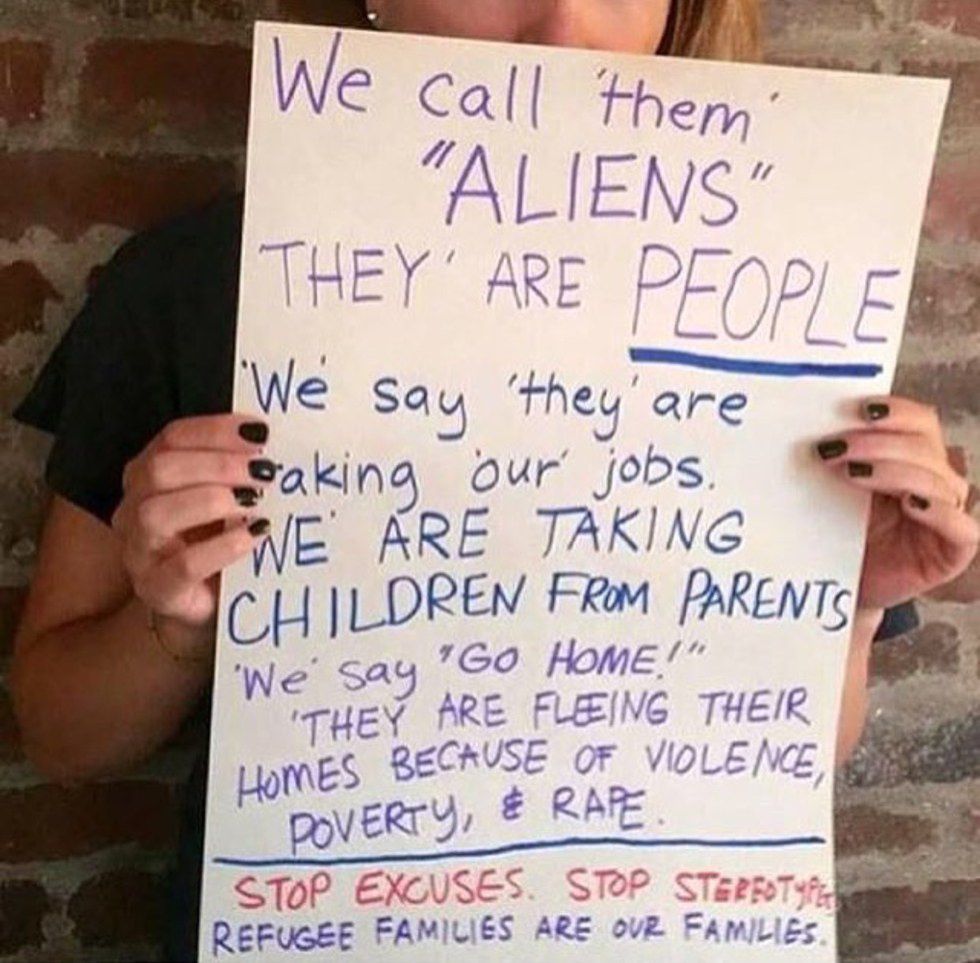 We call 'them'
"ALIENS"
THEY' ARE PEOPLE
'We' say 'they' are
taking 'our' jobs.
'WE' ARE TAKING
CHILDREN FROM PARENTS
'We' say "GO HOME!"
'THEY' ARE FLEEING THEIR
HOMES BECAUSE OF VIOLENCE,
POVERTY, & RAPE.
STOP EXCUSES. STOP STEREOTYPES
REFUGEE FAMILIES ARE OUR FAMILIES.